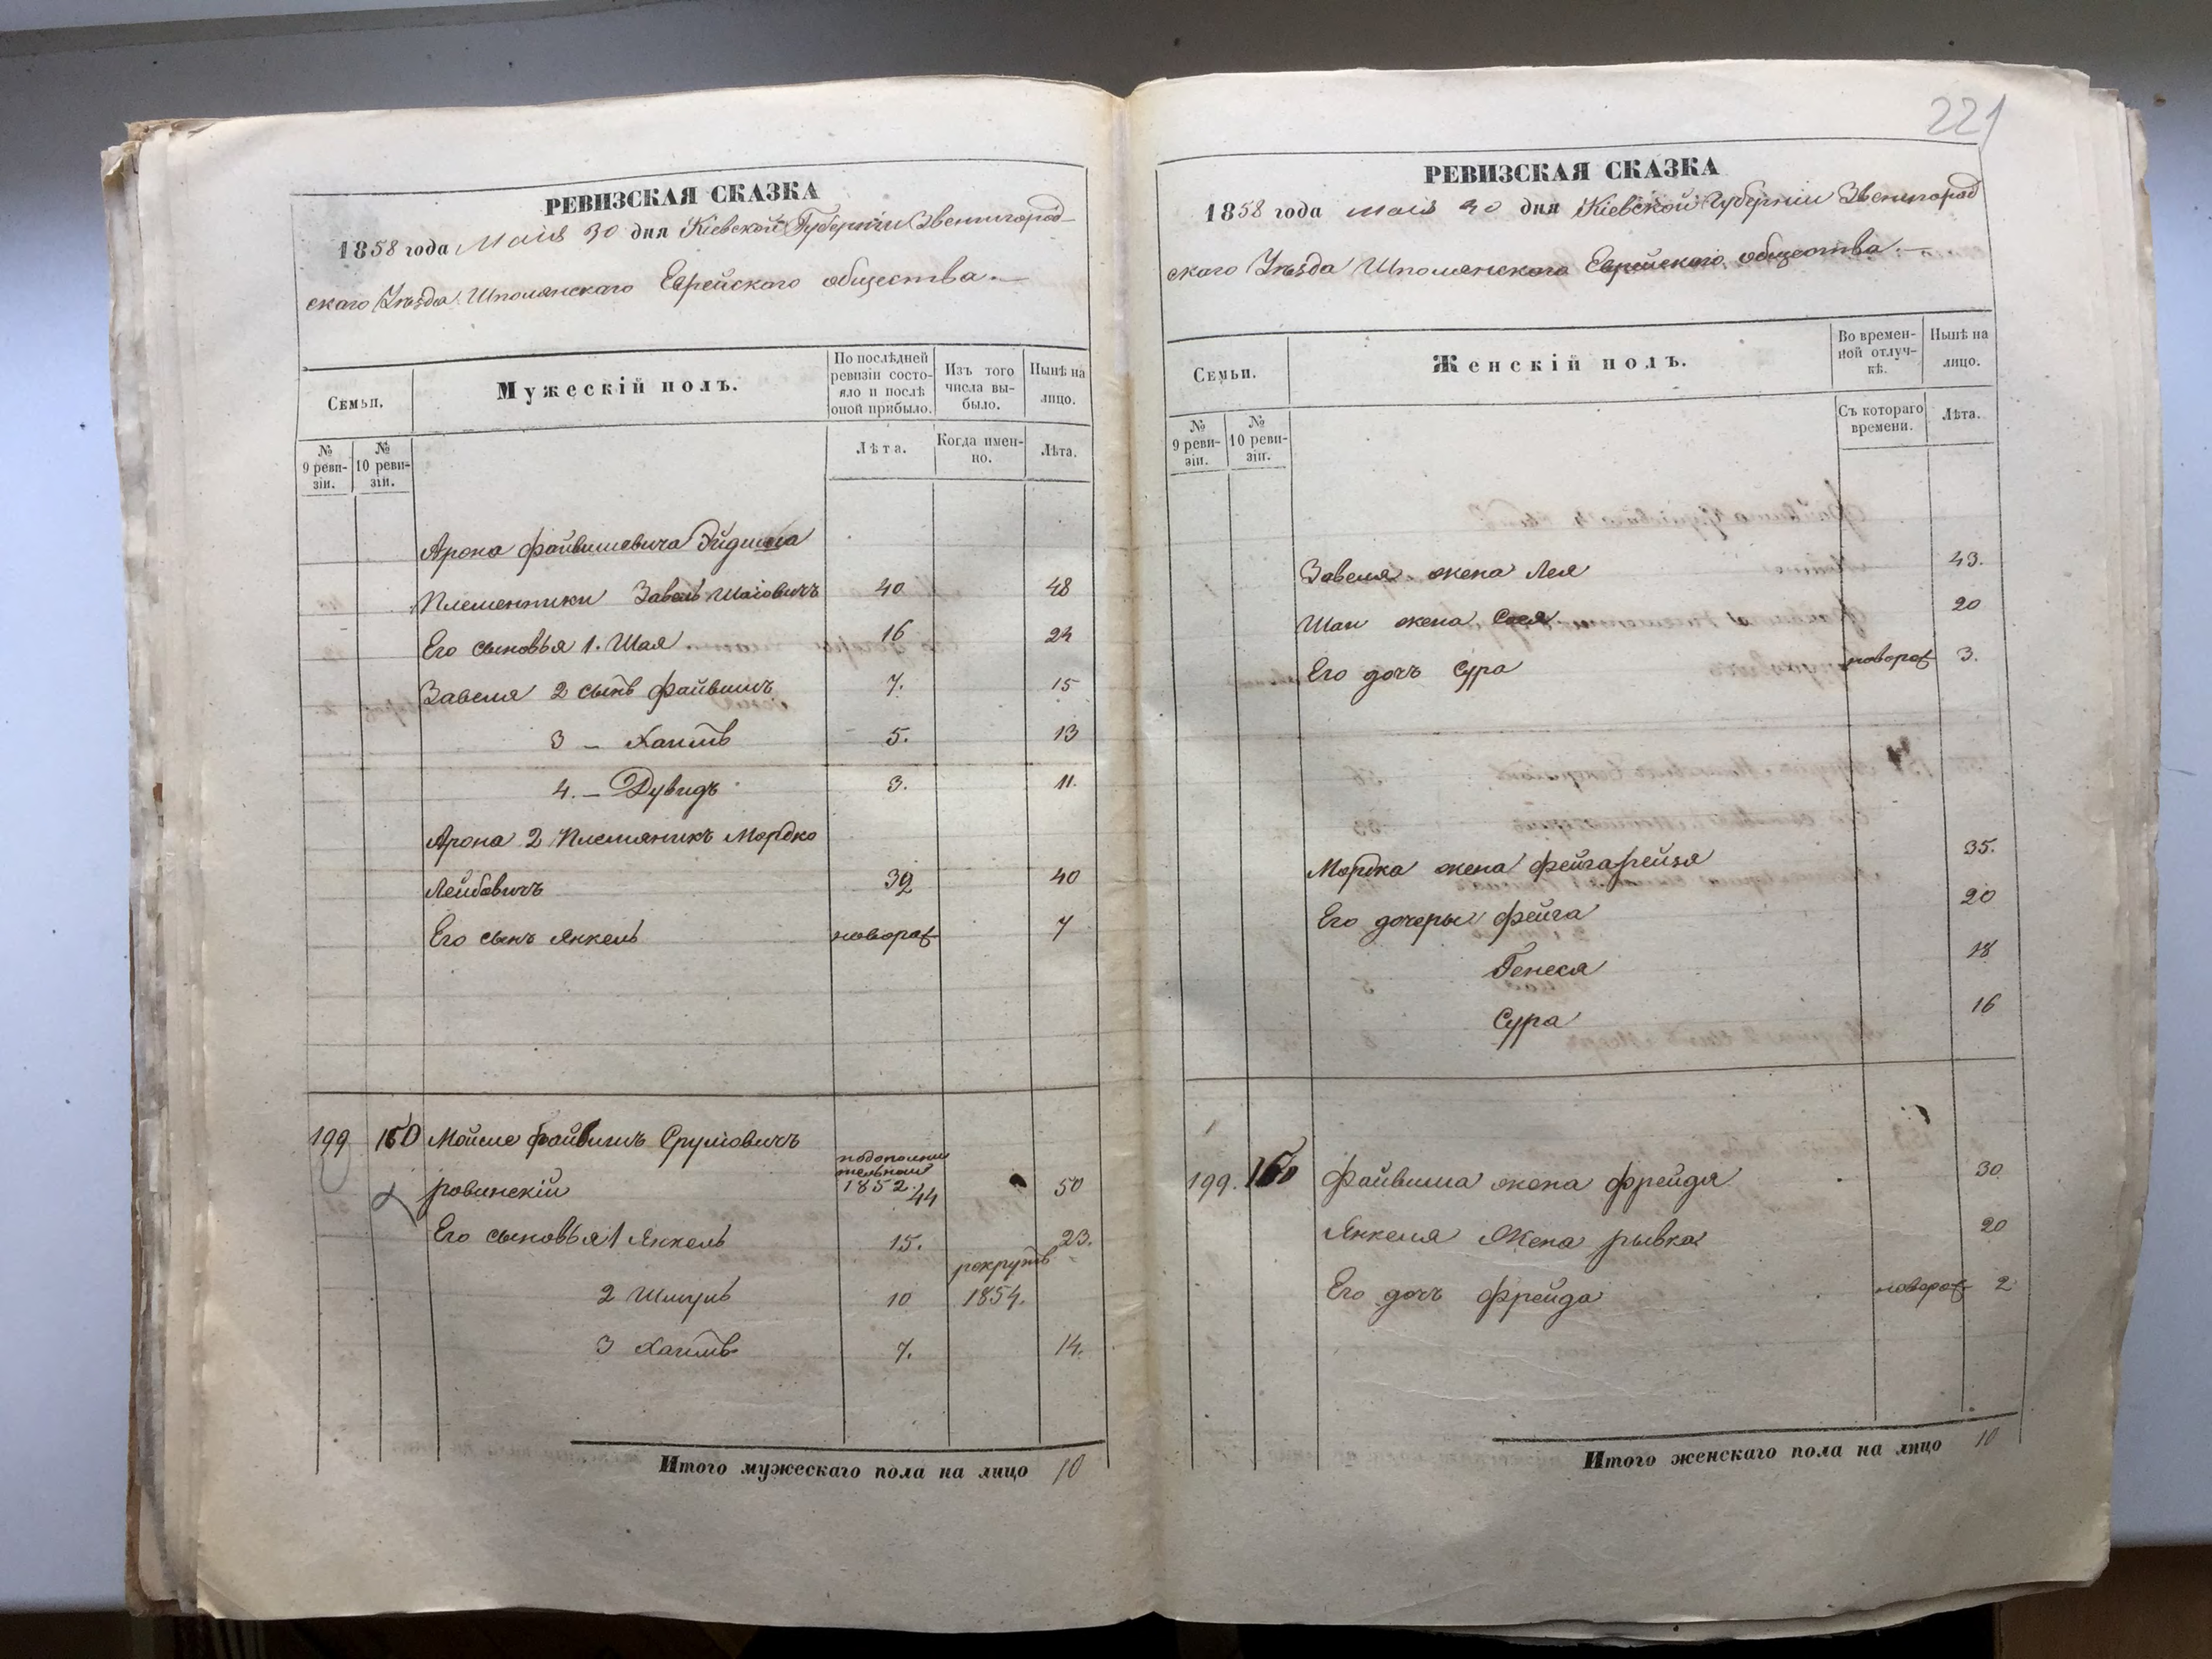 РЕВИЗСКАЯ СКАЗКА
1858 года Маія 30 дня Кіевской Губерніи Звенигород-
скаго Уѣзда Шполянскаго Еврейскаго общества.—
Семьи.
Мужескій полъ.
По послѣдней ревизіи состо-яло и послѣ оной прибыло.
Изъ того числа вы-было.
Нынѣ на лицо.
№ 9 реви-зіи.
№ 10 реви-зіи.
Лѣта.
Когда имен-но.
Лѣта.
Арона Файвишевича
Племенники Завель Шаіовичъ 40 48
Его сыновья 1. Шая 16 24
Завеля 2 сынъ Файвишъ 7. 15
3 — Хаимъ 5. 13
4. — Дувидъ 3. 11.
Арона 2 Племяникъ Мордко
Лейбовичъ 32 40
Его сынъ Янкель новорож 7
199 160 Мойше Файвишъ Сруліовичъ
ровинскій 1852. 44 50
Его сыновья 1 Янкель 15. 23.
2 Шмуль 10 рекрутъ 1854.
3 Хаимъ 7. 14.
Итого мужескаго пола на лицо 10
221
РЕВИЗСКАЯ СКАЗКА
1858 года Маія 30 дня Кіевской Губерніи Звенигород
скаго Уѣзда Шполянскаго Еврейскаго общества.—
Семьи.
Женскій полъ.
Во времен-ной отлуч-кѣ.
Нынѣ на лицо.
№ 9 реви-зіи.
№ 10 реви-зіи.
Съ котораго времени.
Лѣта.
Завеля жена Лея 43.
Шаи жена Сося 20
Его дочъ Сура новорож 3.
Мордка жена Фейгарейзя 35.
Его дочеры Фейга 20
Генеся 18
Сура 16
199. 160 Файвиша жена Фрейдя 30
Янкеля Жена рывка 20
Его дочъ Фрейда новорож 2
Итого женскаго пола на лицо 10